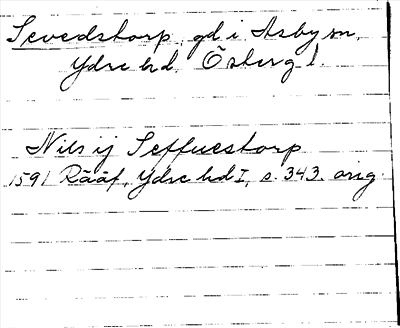 Sevedstorp, gd i Asby sn,
Ydre hd. Österg. l.
Nils ij Seffuestorp
1591 Rääf, Ydre hd I, s. 343. orig.